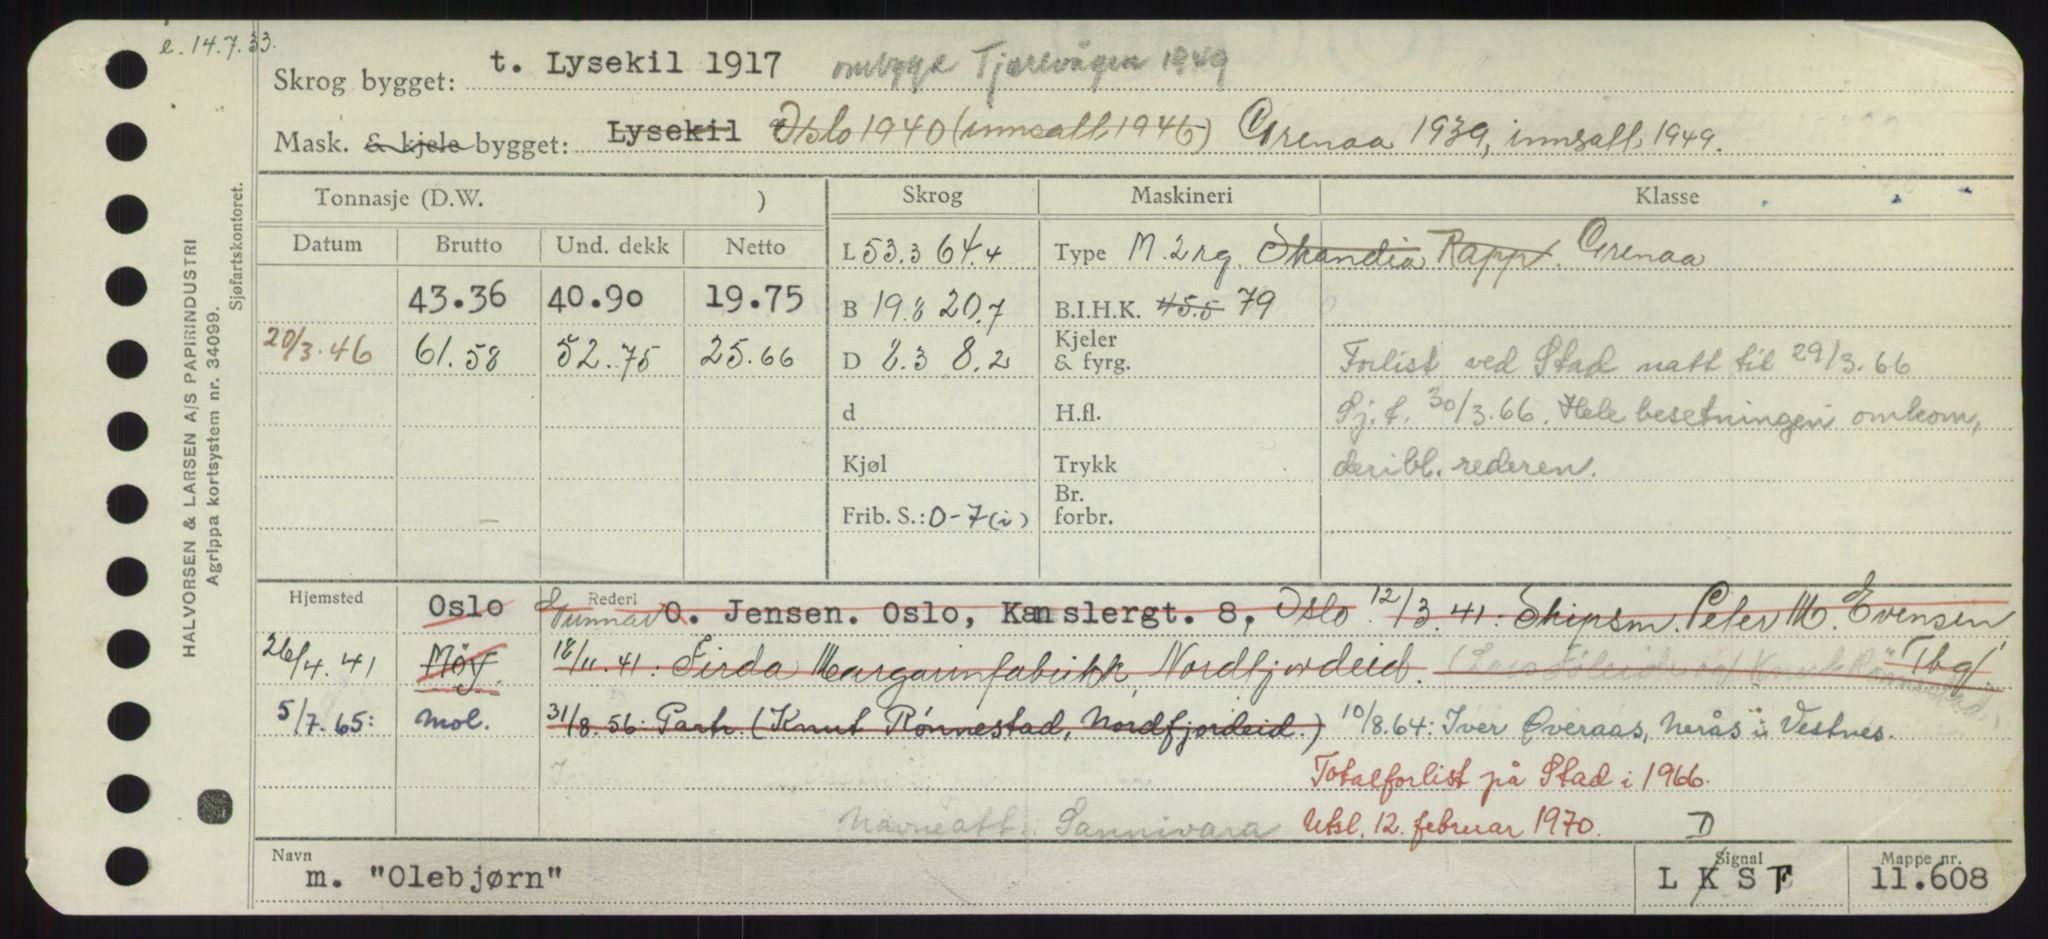 e. 14.7.33.
Skrog bygget: t. Lysekil 1917 ombygd Tjørvågen 1949
Mask. & kjele bygget: Lysekil Oslo 1940 (innsatt 1946) Grenaa 1939, innsatt 1949.
HALVORSEN & LARSEN A/S PAPIRINDUSTRI
Agrippa kortsystem nr. 34099.
Sjøfartskontoret.
Tonnasje (D.W. ) Skrog Maskineri Klasse
Datum Brutto Und. dekk Netto L 53.3 64.4 Type M. 2 rg. Skandia Rapp. Grenaa
43.36 40.90 19.75 B 19.8 20.7 B.I.H.K. 45.5 79
20/3.46 61.58 52.75 25.66 D 8.3 8.2 Kjeler & fyrg. Forlist ved Stad natt til 29/3.66
d H.fl. Sj.t. 30/3.66. Hele besetningen omkom,
Kjøl Trykk deribl. rederen.
Frib. S.: 0-7 (i) Br. forbr.
Hjemsted Oslo Rederi Gunnar O. Jensen. Oslo, Kanslergt. 8, Oslo 12/3.41: Skipsm. Peter M. Evensen
26/4.41 Møy. 18/11.41: Firda Margarinfabrikk, Nordfjordeid. Tbg/
5/7.65: Mol. 31/8.56: Partr. (Knut Rønnestad, Nordfjordeid.) 10/8.64: Iver Øveraas, Nerås i Vestnes.
Totalforlist på Stad i 1966.
Navneatt: Sannivara Utsl. 12. februar 1970. D
Navn Signal Mappe nr.
m. "Olebjørn" L K S F 11.608